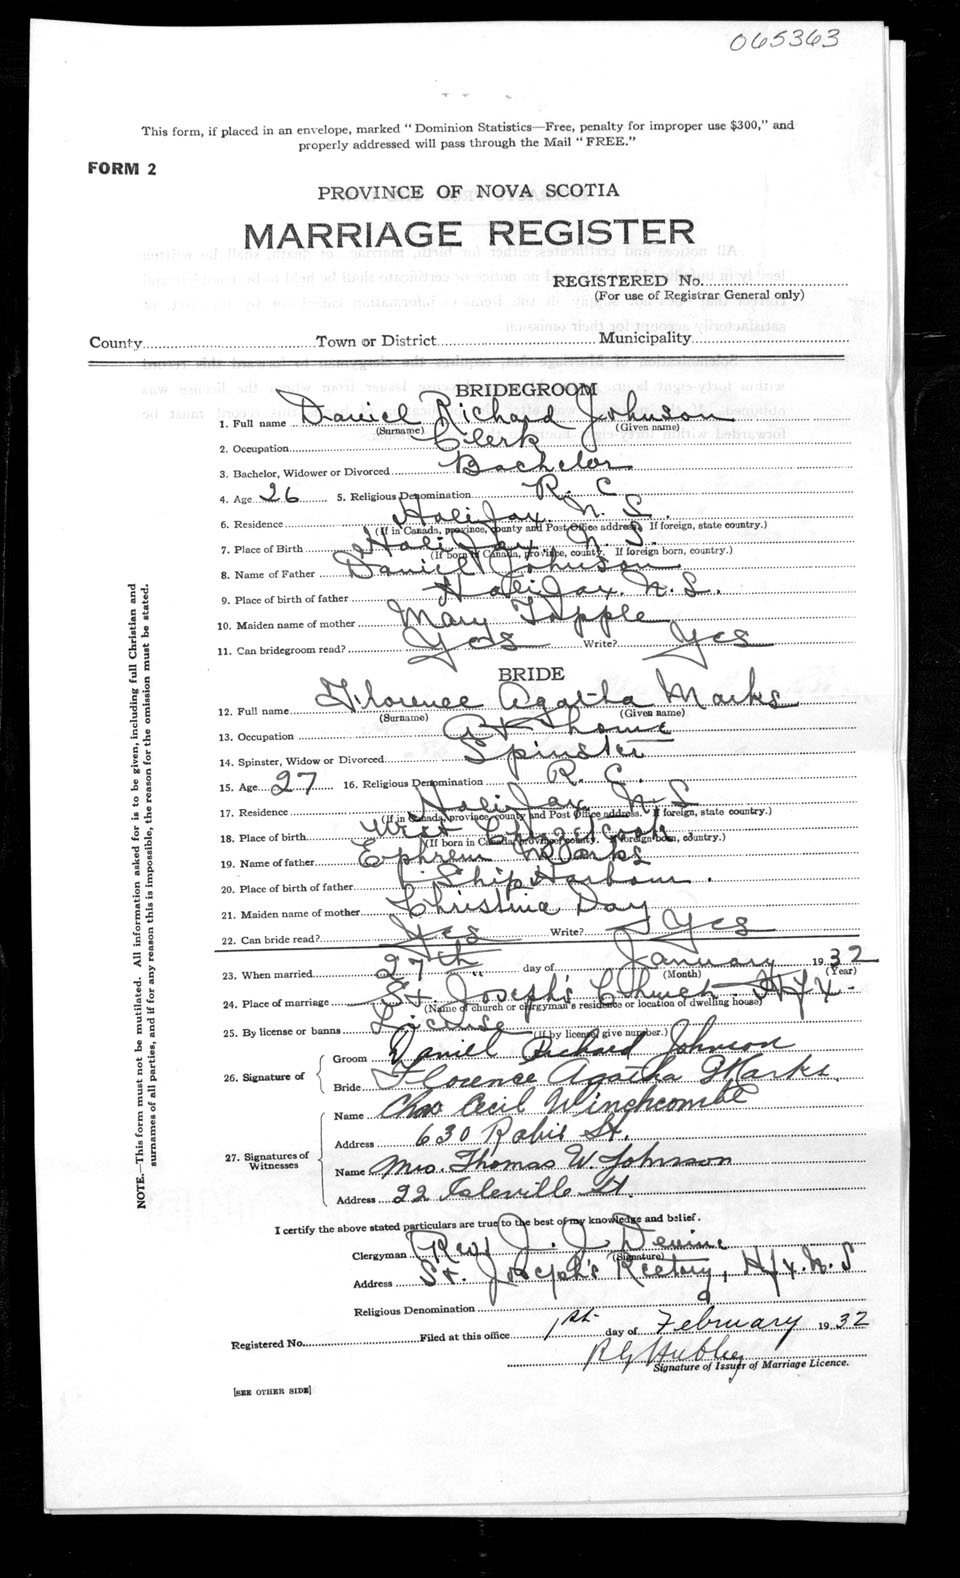 065363
This form, if placed in an envelope, marked "Dominion Statistics—Free, penalty for improper use $300," and
properly addressed will pass through the Mail "FREE."
FORM 2
PROVINCE OF NOVA SCOTIA
MARRIAGE REGISTER
REGISTERED No.
(For use of Registrar General only)
County Town or District Municipality
BRIDEGROOM
1. Full name Daniel Richard Johnson
(Surname) (Given name)
2. Occupation Clerk
3. Bachelor, Widower or Divorced Bachelor
4. Age 26 5. Religious Denomination R. C
6. Residence Halifax, N. S.
(If in Canada, province, county and Post Office address. If foreign, state country.)
7. Place of Birth Halifax N. S.
(If born in Canada, province, county. If foreign born, country.)
8. Name of Father Daniel Johnson
9. Place of birth of father Halifax. N. S.
10. Maiden name of mother Mary Tapple
11. Can bridegroom read? Yes Write? Yes
BRIDE
12. Full name Florence Agatha Marks
(Surname) (Given name)
13. Occupation At home
14. Spinster, Widow or Divorced Spinster
15. Age 27 16. Religious Denomination R. C.
17. Residence Halifax N. S
(If in Canada, province, county and Post Office address. If foreign, state country.)
18. Place of birth West Chezzetcook
(If born in Canada, province, county. If foreign born, country.)
19. Name of father Ephrem Marks
20. Place of birth of father Ship Harbour.
21. Maiden name of mother Christina Day
22. Can bride read? Yes Write? Yes
23. When married 27th day of January 1932
(Month) (Year)
24. Place of marriage St. Joseph's Church Hfx-
(Name of church or clergyman's residence or location of dwelling house)
25. By license or banns License
(If by license, give number.)
26. Signature of Groom Daniel Richard Johnson
Bride Florence Agatha Marks.
27. Signatures of Witnesses
Name Chas Cecil Winchcombe
Address 630 Robie St.
Name Mrs. Thomas W. Johnson
Address 22 Isleville St.
I certify the above stated particulars are true to the best of my knowledge and belief.
Clergyman Rev J. J. Devine
(Signature)
Address St. Joseph's Rectory, Hfx. N. S
Religious Denomination
Registered No. Filed at this office 1st day of February 1932
R G Hubley
Signature of Issuer of Marriage Licence.
[SEE OTHER SIDE]
NOTE.—This form must not be mutilated. All information asked for is to be given, including full Christian and
surnames of all parties, and if for any reason this is impossible, the reason for the omission must be stated.